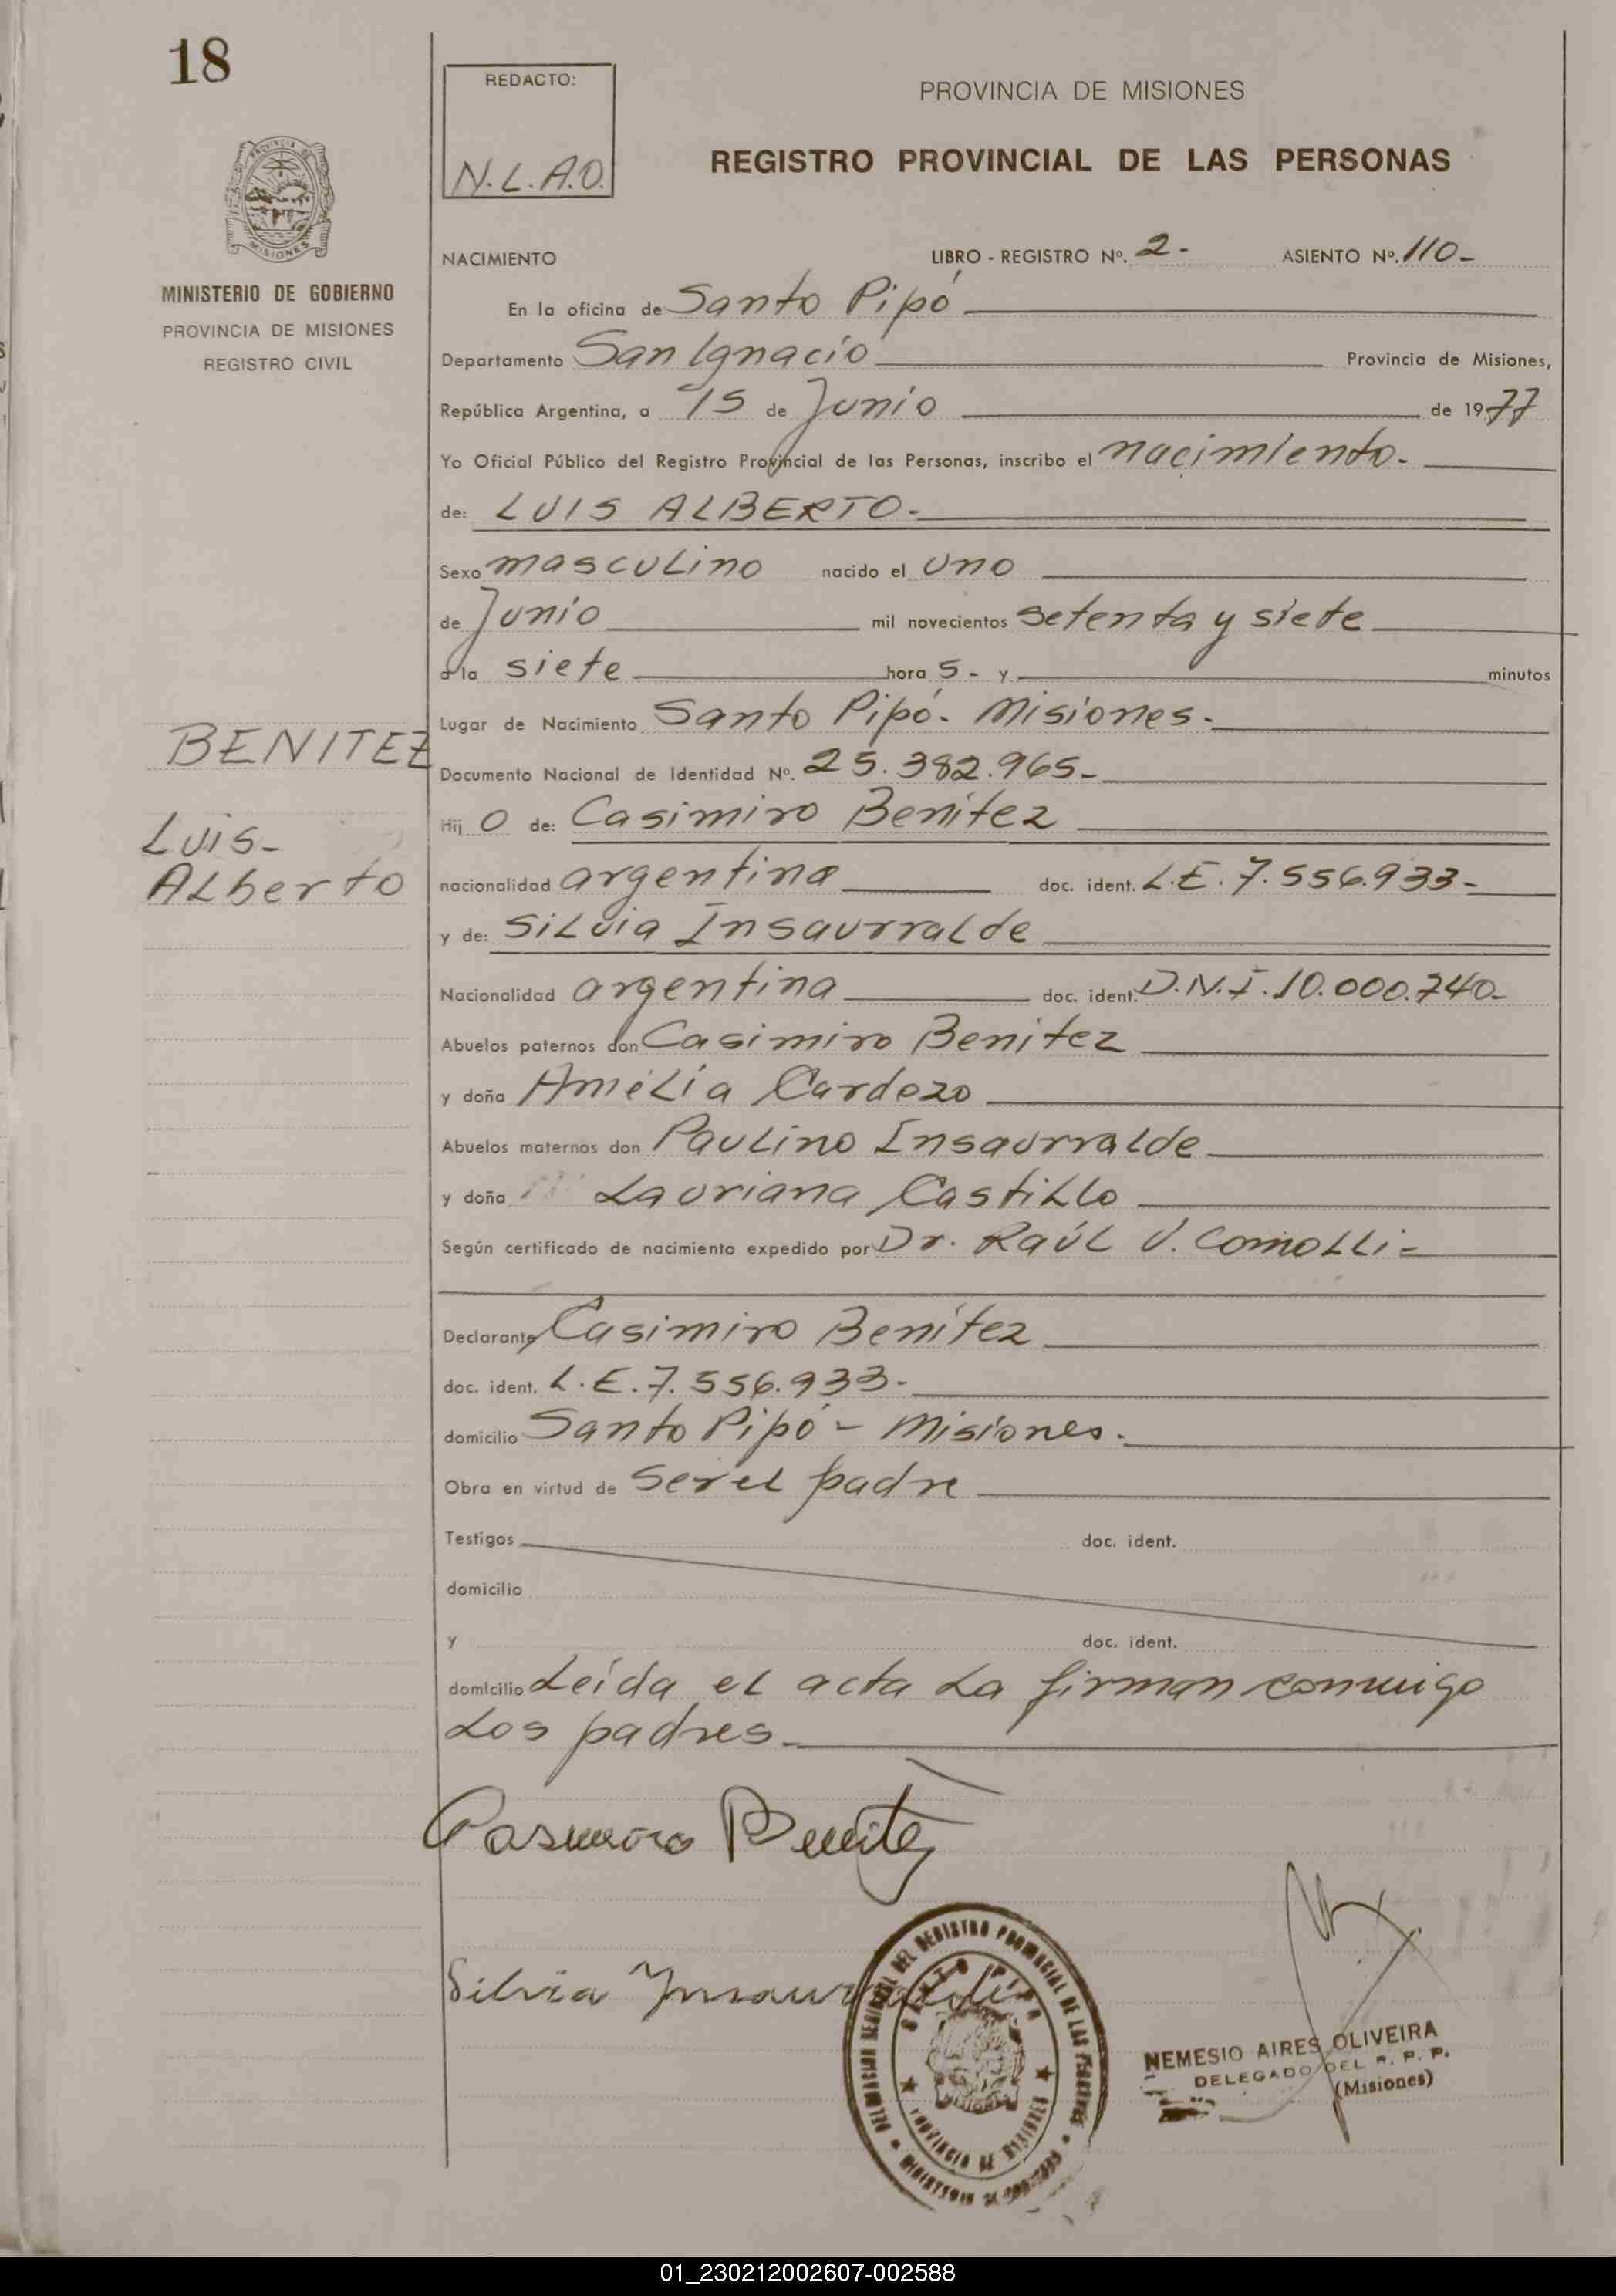 18
REDACTO:
N.L.A.O.
PROVINCIA DE MISIONES
REGISTRO PROVINCIAL DE LAS PERSONAS
MINISTERIO DE GOBIERNO
PROVINCIA DE MISIONES
REGISTRO CIVIL
NACIMIENTO LIBRO - REGISTRO Nº. 2- ASIENTO Nº. 110-
En la oficina de Santo Pipó
Departamento San Ignacio Provincia de Misiones,
República Argentina, a 15 de Junio de 1977
Yo Oficial Público del Registro Provincial de las Personas, inscribo el nacimiento.-
de: LUIS ALBERTO.-
Sexo masculino nacido el uno
de Junio mil novecientos setenta y siete
a la siete hora s- y minutos
Lugar de Nacimiento Santo Pipó. Misiones.-
BENITEZ
Documento Nacional de Identidad Nº. 25.382.965-
Hij o de: Casimiro Benítez
Luis-
Alberto
nacionalidad argentina doc. ident. L.E. 7.556.933-
y de: Silvia Insaurralde
Nacionalidad argentina doc. ident. D.N.I. 10.000.740-
Abuelos paternos don Casimiro Benítez
y doña Amelia Cardozo
Abuelos maternos don Paulino Insaurralde
y doña Lauriana Castillo
Según certificado de nacimiento expedido por Dr. Raúl V. Comolli-
Declarante Casimiro Benítez
doc. ident. L.E. 7.556.933-
domicilio Santo Pipó - Misiones.-
Obra en virtud de ser el padre
Testigos doc. ident.
domicilio
y doc. ident.
domicilio Leída el acta la firman conmigo
los padres.-
Casimiro Benitez
Silvia Ynsaurralde
DELEGACION REGIONAL DEL REGISTRO PROVINCIAL DE LAS PERSONAS
SANTO PIPO
PROVINCIA DE MISIONES
NEMESIO AIRES OLIVEIRA
DELEGADO DEL R. P. P.
(Misiones)
01_230212002607-002588